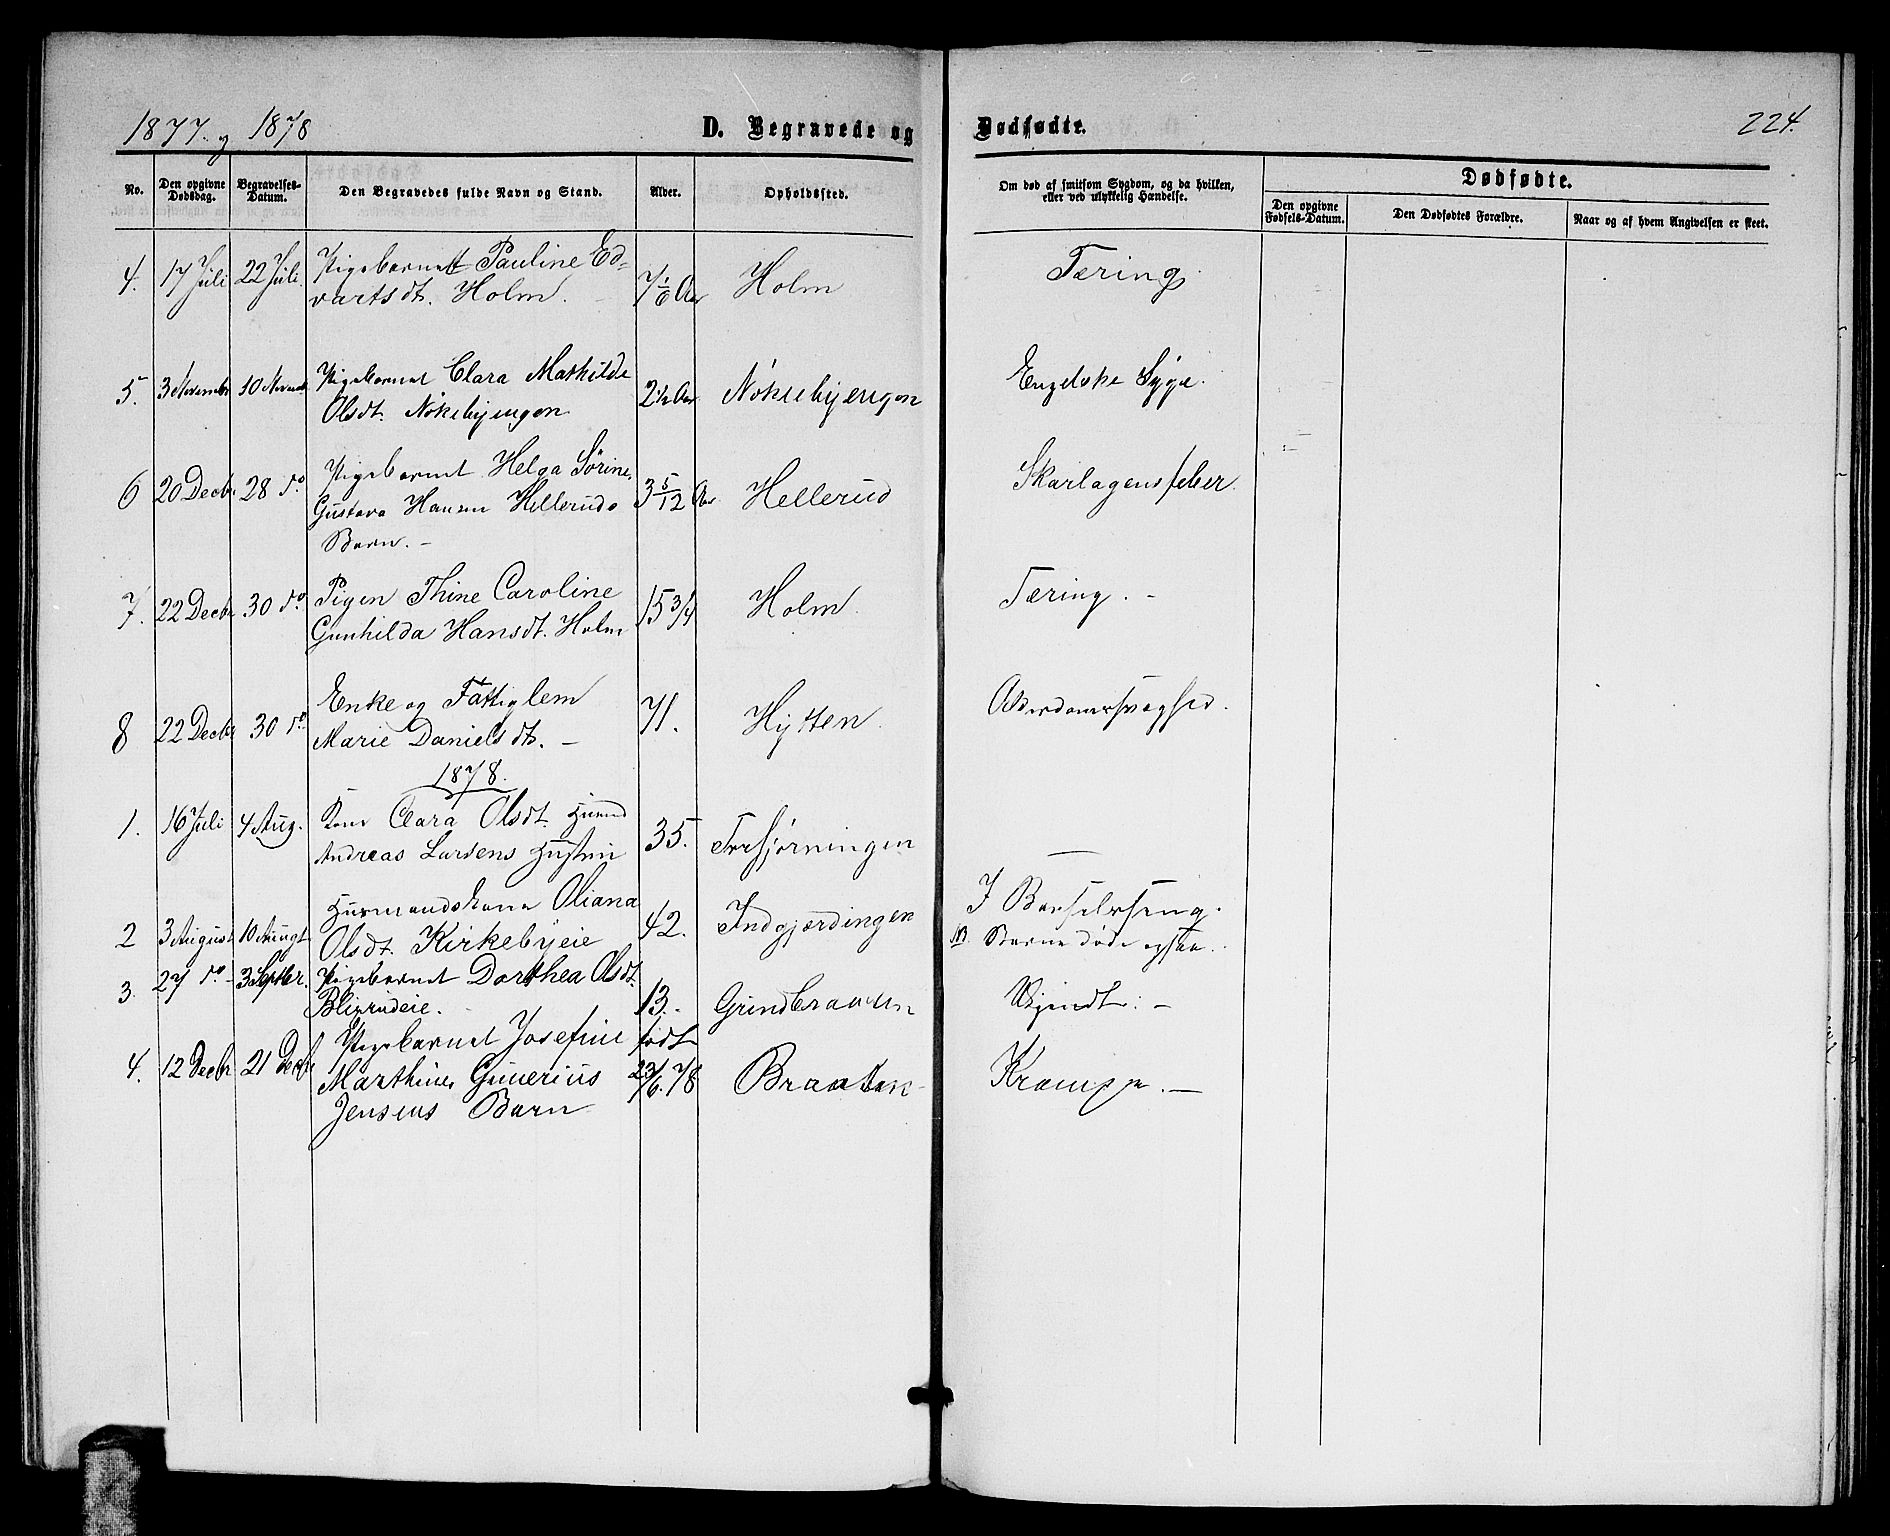 1877. og 1878
D. Begravede og Dødfødte.
224.
No.
Den opgivne Dødsdag.
Begravelses-Datum.
Den Begravedes fulde Navn og Stand.
Alder.
Opholdssted.
Om død af smitsom Sygdom, og da hvilken,
eller ved ulykkelig Hændelse.
Dødfødte.
Den opgivne Fødsels-Datum.
Den Dødfødtes Forældre.
Naar og af hvem Angivelsen er skeet.
4. 17 Juli 22 Juli. Pigebarnet Pauline Ed-
vartsdt. Holm. 7 1/6 Aar Holm Tæring
5. 3 November 10 Novemb. Pigebarnet Clara Mathilde
Olsdt. Nökebyengen 2 1/2 Aar Nöklebyengen Engelske Syge.
6 20 Decbr 28 do Pigebarnet Helga Sörine
Gustava Hansen Helleruds
Barn. - 3 5/12 Aar Hellerud Skarlagensfeber.
7. 22 Decbr 30 do Pigen Thine Caroline
Gunhilda Hansdt. Holm 15 3/4 Holm. Tæring. -
8 22 Decbr 30 do Enke og Fattiglem
Marie Danielsdt. - 71. Hytten Alderdomssvaghed.
1878.
1. 16 Juli 4 Aug. Kone Clara Olsdt. Husmd
Andreas Larsens Hustru 35. —
2 3 August 10 Augt. Husmandskone Oliana
Olsdt. Kirkebyeie 42. Indgjærdingen I Barselseng.
NB. Barnet døde ogsaa.
3. 27 do - 3 Septbr. Pigebarnet Dorthea Olsdt.
13. Grindbraaten -
4. 12 Decbr 21 Decbr Pigebarnet Josefine
Marthine, Gunerius
Jensens Barn født
23/6. 78 Braaten Krampe. —